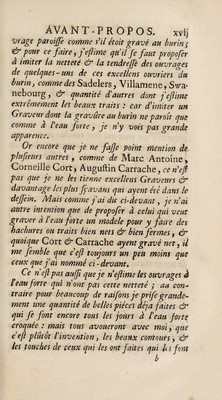 AVANT-PROPOS. xvij
vrage paroisse comme s'il étoit gravé au burin;
& pour ce faire, j'estime qu'il se faut proposer
à imiter la netteté & la tendresse des ouvrages
de quelques-uns de ces excellens ouvriers du
burin, comme des Sadelers, Villamene, Swa-
nebourg, & quantité d'autres dont j'estime
extrémement les beaux traits : car d'imiter un
Graveur dont la gravûre au burin ne paroit que
comme à l'eau forte, je n'y vois pas grande
apparence.
Or encore que je ne fasse point mention de
plusieurs autres, comme de Marc Antoine,
Corneille Cort, Augustin Carrache, ce n'est
pas que je ne les tienne excellens Graveurs &
davantage les plus sçavans qui ayent été dans le
dessein. Mais comme j'ai dit ci-devant, je n'ai
autre intention que de proposer à celui qui veut
graver à l'eau forte un modele pour y faire des
hachures ou traits bien nets & bien fermes, &
quoique Cort & Carrache ayent gravé net, il
me semble que c'est toujours un peu moins que
ceux que j'ai nommé ci-devant.
Ce n'est pas aussi que je n'estime les ouvrages à
l'eau forte qui n'ont pas cette netteté ; au con-
traire pour beaucoup de raisons je prise grande-
ment une quantité de belles piéces déja faites &
qui se font encore tous les jours à l'eau forte
croquée : mais tous avoueront avec moi, que
c'est plûtôt l'invention, les beaux contours, &
les touches de ceux qui les ont faites qui les font
b